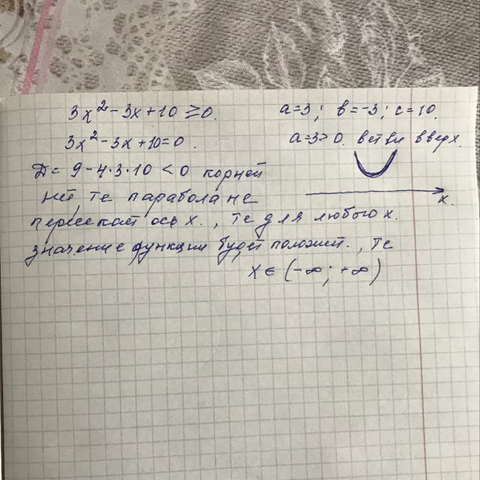 3x² - 3x + 10 ≥ 0.
a=3; b=-3; c=10.
3x² - 3x + 10 = 0.
a=3>0. ветви вверх.
Д = 9 - 4·3·10 < 0 корней
нет, те парабола не
x.
пересекат ось x., те для любого x.
значение функции будет положит., те
x ∈ (-∞; +∞)